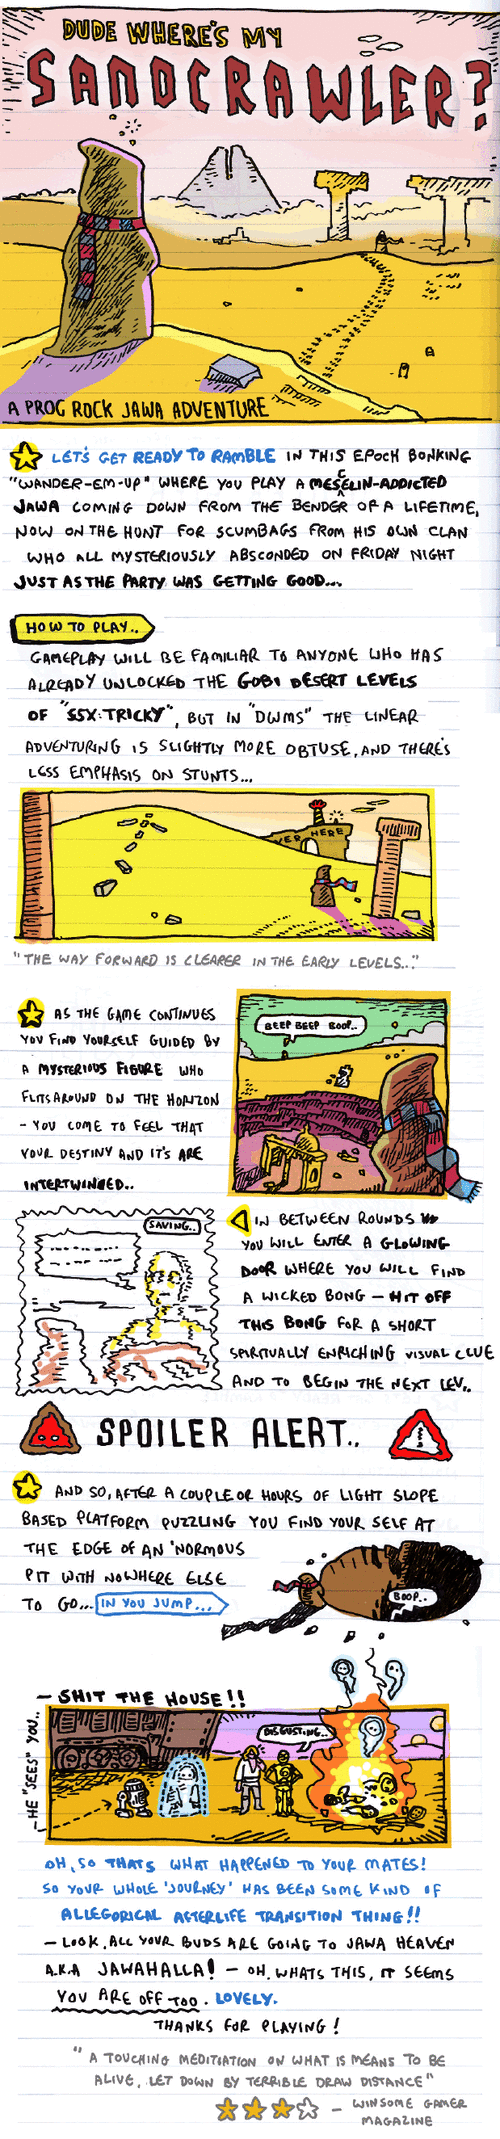 DUDE WHERE'S MY
SANDCRAWLER?
A PROG ROCK JAWA ADVENTURE
LET'S GET READY TO RAMBLE IN THIS EPOCH BONKING
"WANDER-EM-UP" WHERE YOU PLAY A MESCELIN-ADDICTED
JAWA COMING DOWN FROM THE BENDER OF A LIFETIME,
NOW ON THE HUNT FOR SCUMBAGS FROM HIS OWN CLAN
WHO ALL MYSTERIOUSLY ABSCONDED ON FRIDAY NIGHT
JUST AS THE PARTY WAS GETTING GOOD...
HOW TO PLAY..
GAMEPLAY WILL BE FAMILIAR TO ANYONE WHO HAS
ALREADY UNLOCKED THE GOBI DESERT LEVELS
OF "SSX:TRICKY", BUT IN "DWMS" THE LINEAR
ADVENTURING IS SLIGHTLY MORE OBTUSE, AND THERE'S
LESS EMPHASIS ON STUNTS...
VER HERE
"THE WAY FORWARD IS CLEARER IN THE EARLY LEVELS.."
AS THE GAME CONTINUES
YOU FIND YOURSELF GUIDED BY
A MYSTERIOUS FIGURE WHO
FLITS AROUND ON THE HORIZON
- YOU COME TO FEEL THAT
YOUR DESTINY AND IT'S ARE
INTERTWINED..
BEEP BEEP BOOP..
SAVING..
IN BETWEEN ROUNDS
YOU WILL ENTER A GLOWING
DOOR WHERE YOU WILL FIND
A WICKED BONG - HIT OFF
THIS BONG FOR A SHORT
SPIRITUALLY ENRICHING VISUAL CLUE
AND TO BEGIN THE NEXT LEV..
SPOILER ALERT..
AND SO, AFTER A COUPLE OR HOURS OF LIGHT SLOPE
BASED PLATFORM PUZZLING YOU FIND YOUR SELF AT
THE EDGE OF AN 'NORMOUS
PIT WITH NOWHERE ELSE
TO GO... IN YOU JUMP...
BOOP..
- SHIT THE HOUSE!!
- HE "SEES" YOU..
DISGUSTING..
OH, SO THATS WHAT HAPPENED TO YOUR MATES!
SO YOUR WHOLE 'JOURNEY' HAS BEEN SOME KIND OF
ALLEGORICAL AFTERLIFE TRANSITION THING!!
- LOOK, ALL YOUR BUDS ARE GOING TO JAWA HEAVEN
A.K.A JAWAHALLA! - OH, WHATS THIS, IT SEEMS
YOU ARE OFF TOO. LOVELY.
THANKS FOR PLAYING!
"A TOUCHING MEDITIATION ON WHAT IS MEANS TO BE
ALIVE, LET DOWN BY TERRIBLE DRAW DISTANCE"
- WINSOME GAMER
MAGAZINE